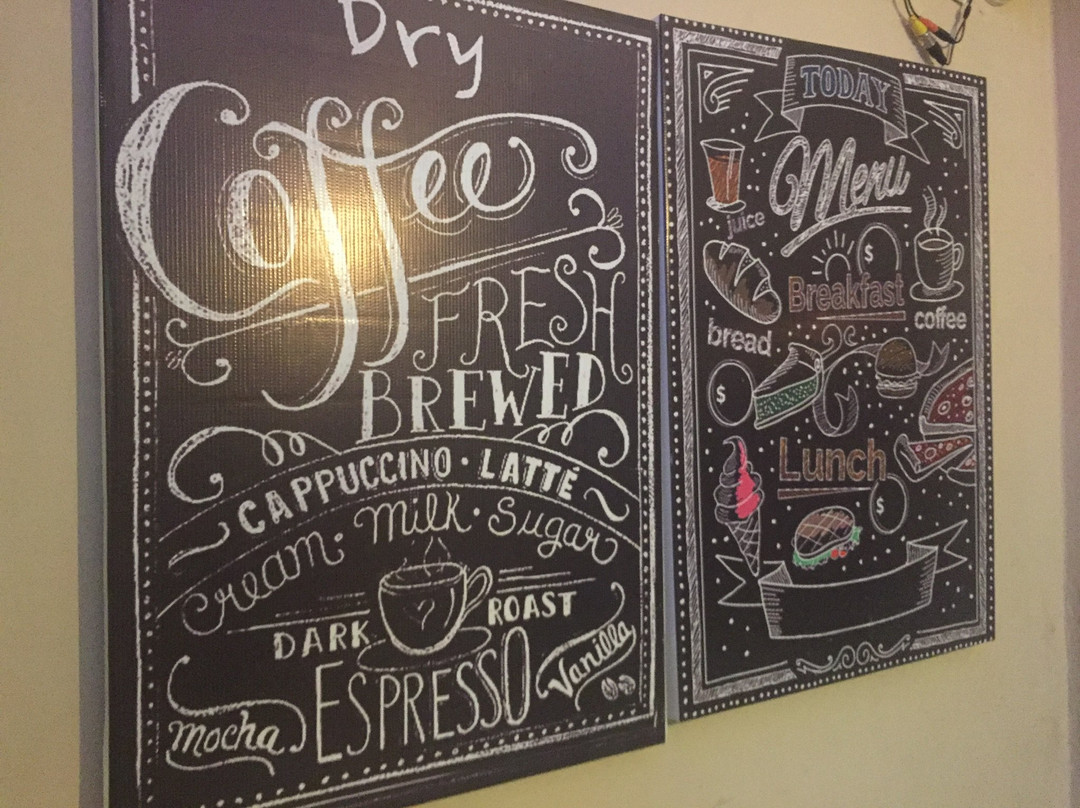 Dry
Coffee
FRESH
BREWED
CAPPUCCINO · LATTÉ
cream · milk · Sugar
DARK ROAST
ESPRESSO
Vanilla
Mocha
TODAY
Menu
juice
$
Breakfast
bread
coffee
$
Lunch
$